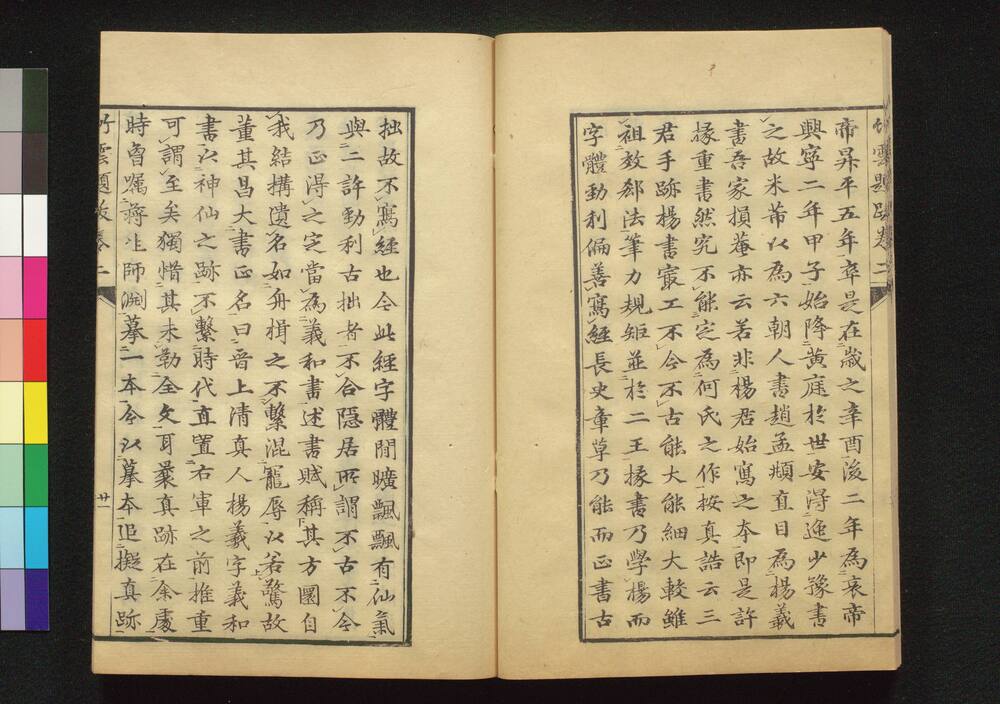 竹雲題跋卷二
帝昇平五年卒是在歲之辛酉後二年為哀帝
興寧二年甲子始降黃庭於世安得逸少豫書
之故米芾以為六朝人書趙孟頫直目為楊羲
書吾家損菴亦云若非楊君始寫之本即是許
掾重書然究不能定為何氏之作按真誥云三
君手跡楊書㝡工不今不古能大能細大較雖
祖效郄法筆力規矩並於二王掾書乃學楊而
字體勁利偏善寫經長史章草乃能而正書古
拙故不寫經也今此經字體閒曠飄飄有仙氣
與二許勁利古拙者不合隱居所謂不古不今
乃正得之定當為羲和書述書賦稱其方圓自
我結搆遺名如舟楫之不繫混寵辱以若驚故
董其昌大書正名曰晉上清真人楊羲字羲和
書以神仙之跡不繫時代直置右軍之前推重
可謂至矣獨惜其未勒全文耳褧真跡在余處
時曾囑蔣生師淵摹一本今以摹本追擬真跡
竹雲題跋卷二
廿一